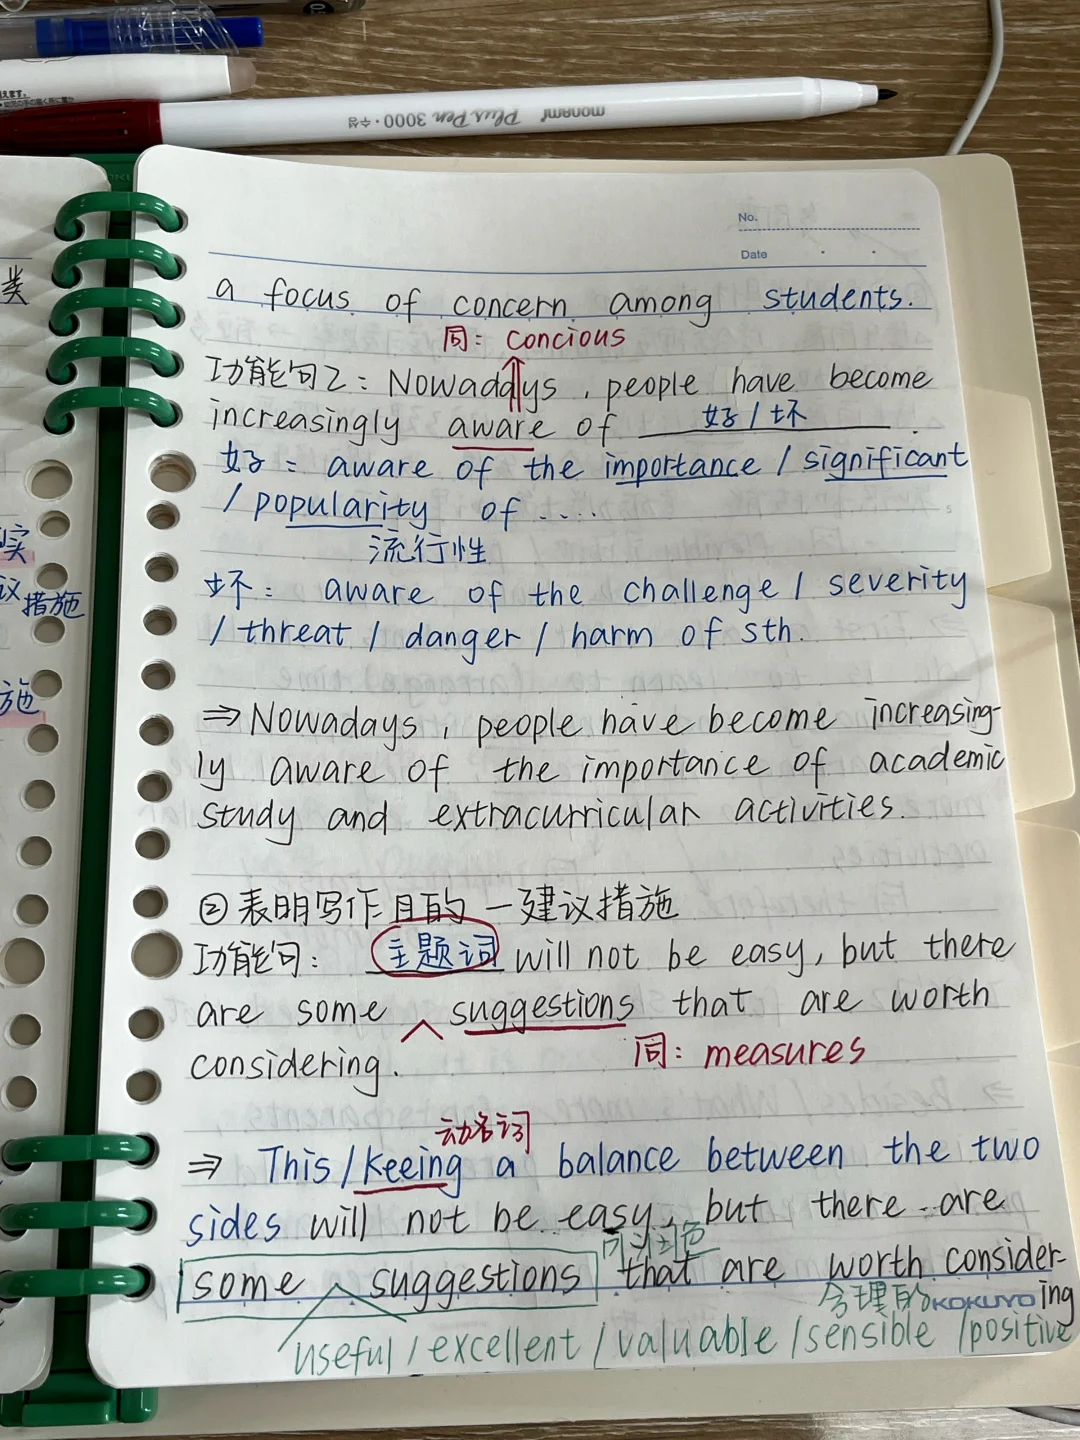 monami Plus Pen 3000 · 수성
No.
Date
类
实
议措施
施
a focus of concern among students.
同: concious
功能句2: Nowadays, people have become
increasingly aware of 好/坏.
好: aware of the importance / significant
/ popularity of ....
流行性
坏: aware of the challenge / severity
/ threat / danger / harm of sth.
⇒ Nowadays, people have become increasing-
ly aware of the importance of academic
study and extracurricular activities.
② 表明写作目的 — 建议措施
功能句: 主题词 will not be easy, but there
are some ^ suggestions that are worth
considering.
同: measures
动名词
⇒ This / keeing a balance between the two
sides will not be easy, but there are
some suggestions that are worth consider-
ing
合理的
KOKUYO
useful / excellent / valuable / sensible / positive